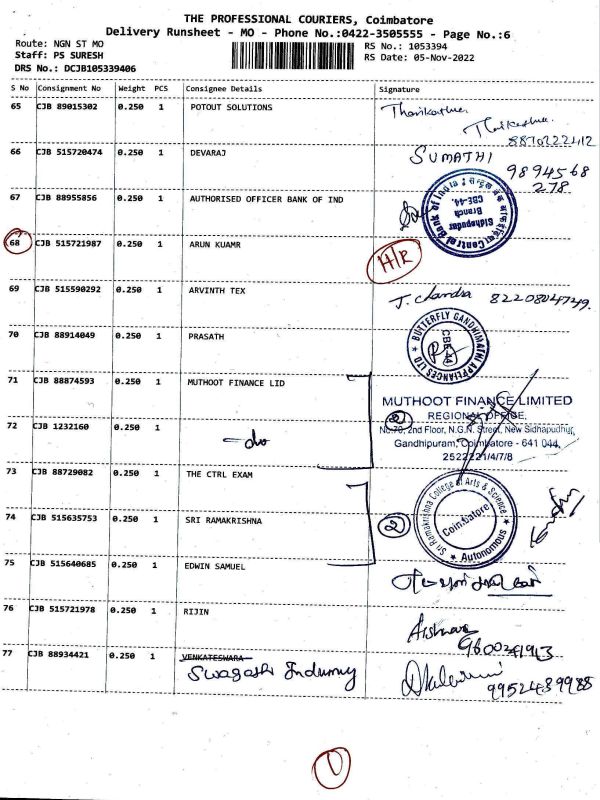 THE PROFESSIONAL COURIERS, Coimbatore
Delivery Runsheet - MO - Phone No.:0422-3505555 - Page No.:6
Route: NGN ST MO
Staff: PS SURESH
DRS No.: DCJB105339406
RS No.: 1053394
RS Date: 05-Nov-2022
S No Consignment No Weight PCS Consignee Details Signature
65 CJB 89015302 0.250 1 POTOUT SOLUTIONS
8870222412
66 CJB 515720474 0.250 1 DEVARAJ SUMATHI
9894568
278
67 CJB 88955856 0.250 1 AUTHORISED OFFICER BANK OF IND
Central Bank of India
Sidhapudur
Branch
CBE-44.
68 CJB 515721987 0.250 1 ARUN KUAMR H/R
69 CJB 515590292 0.250 1 ARVINTH TEX J. Chandra 8220804749.
70 CJB 88914049 0.250 1 PRASATH
BUTTERFLY GANDHIMATHI APPLIANCES LTD
CBE-44
71 CJB 88874593 0.250 1 MUTHOOT FINANCE LID
MUTHOOT FINANCE LIMITED
REGIONAL OFFICE,
No.70, 2nd Floor, N.G.N. Street, New Sidhapudhur,
Gandhipuram, Coimbatore - 641 044.
2522221/4/7/8
2
72 CJB 1232160 0.250 1 -do
73 CJB 88729082 0.250 1 THE CTRL EXAM
Sri Ramakrishna College of Arts & Science
Coimbatore
Autonomous
2
74 CJB 515635753 0.250 1 SRI RAMAKRISHNA
75 CJB 515640685 0.250 1 EDWIN SAMUEL
76 CJB 515721978 0.250 1 RIJIN
77 CJB 88934421 0.250 1 VENKATESWARA
9952489988
1